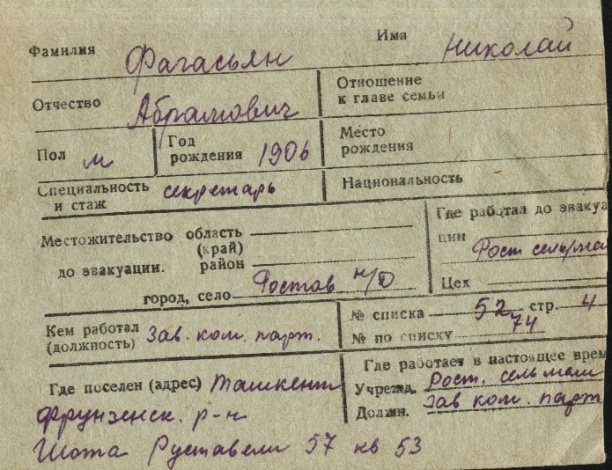 Фамилия Фагасьян Имя Николай
Отчество Абрамович Отношение к главе семьи
Пол м Год рождения 1906 Место рождения
Специальность и стаж секретарь Национальность
Местожительство до эвакуации. область (край)
район
город, село Ростов н/Д
Где работал до эвакуа
ции Рост сельма
Цех
Кем работал (должность) Зав. ком. парт.
№ списка 52 стр. 4
№ по списку 74
Где поселен (адрес) Ташкент
Фрунзенск. р-н
Шота Руставели 57 кв 53
Где работает в настоящее врем
Учрежд. Рост. сельмаш
Должн. Зав ком. парт